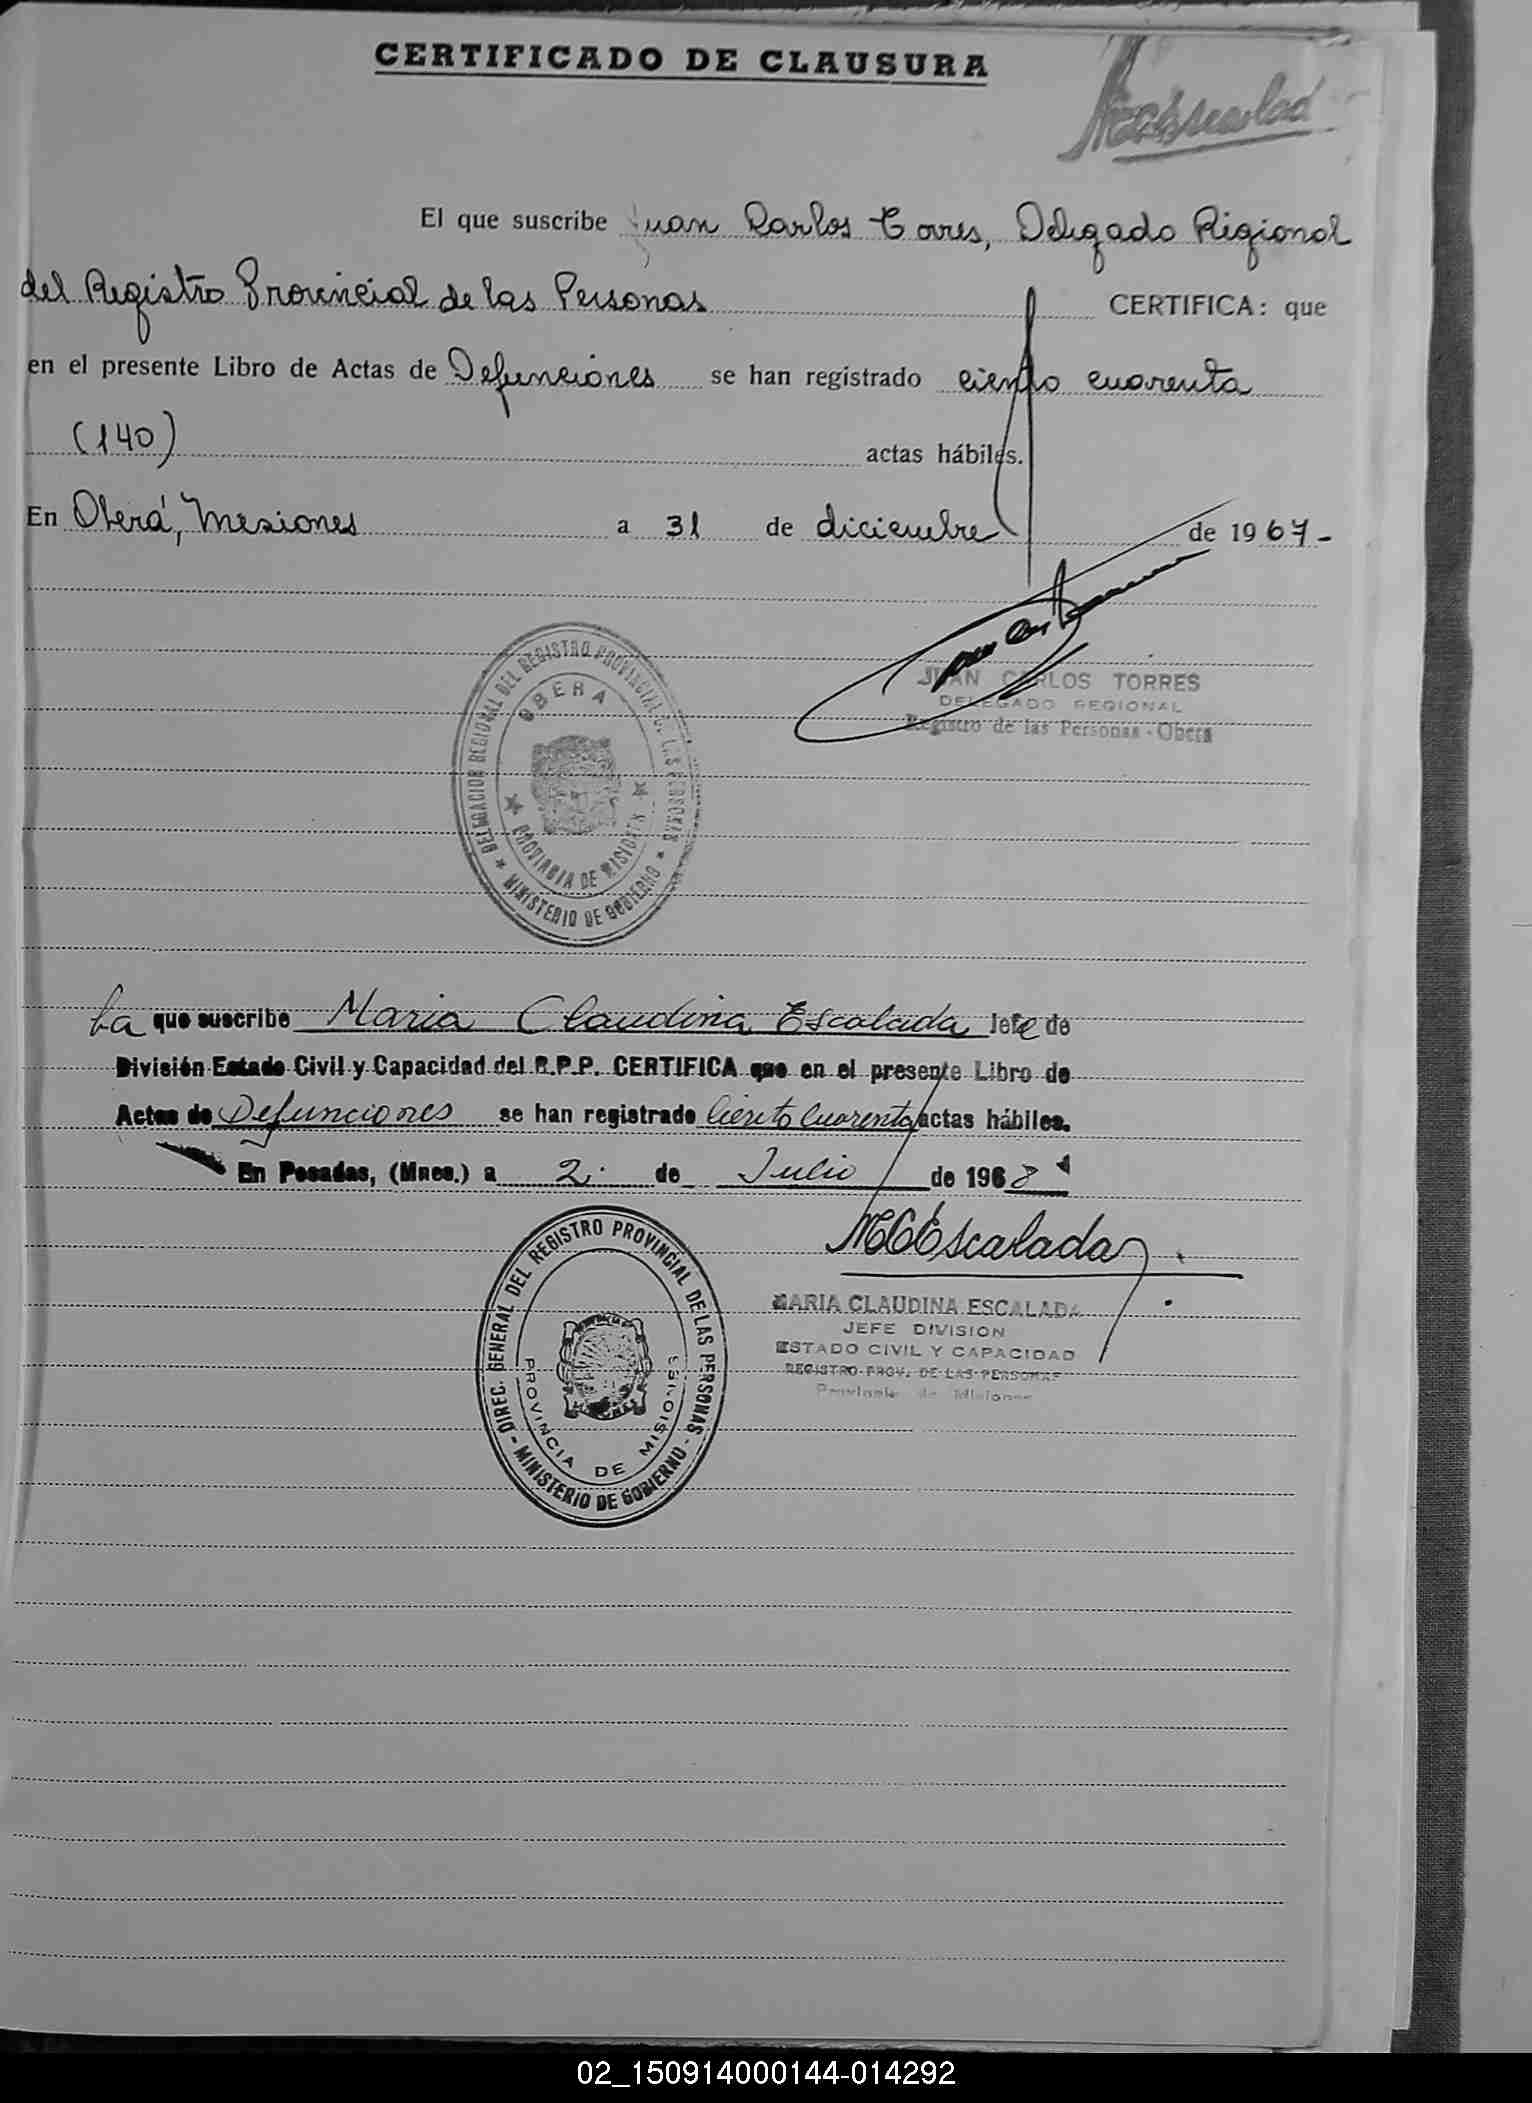 CERTIFICADO DE CLAUSURA
El que suscribe Juan Carlos Torres, Delegado Regional
del Registro Provincial de las Personas CERTIFICA: que
en el presente Libro de Actas de Defunciones se han registrado ciento cuarenta
(140) actas hábiles.
En Oberá, Misiones a 31 de diciembre de 1967-
JUAN CARLOS TORRES
DELEGADO REGIONAL
Registro de las Personas - Obera
DELEGACION REGIONAL DEL REGISTRO PROVINCIAL DE LAS PERSONAS
OBERA
PROVINCIA DE MISIONES
MINISTERIO DE GOBIERNO
La que suscribe Maria Claudina Escalada Jefe de
División Estado Civil y Capacidad del R.P.P. CERTIFICA que en el presente Libro de
Actas de Defunciones se han registrado Ciento Cuarenta actas hábiles.
En Posadas, (Mnes.) a 2 de Julio de 1968
MCEscalada
MARIA CLAUDINA ESCALADA
JEFE DIVISION
ESTADO CIVIL Y CAPACIDAD
REGISTRO PROV. DE LAS PERSONAS
Provincia de Misiones
DIREC. GENERAL DEL REGISTRO PROVINCIAL DE LAS PERSONAS
PROVINCIA DE MISIONES
MINISTERIO DE GOBIERNO
02_150914000144-014292